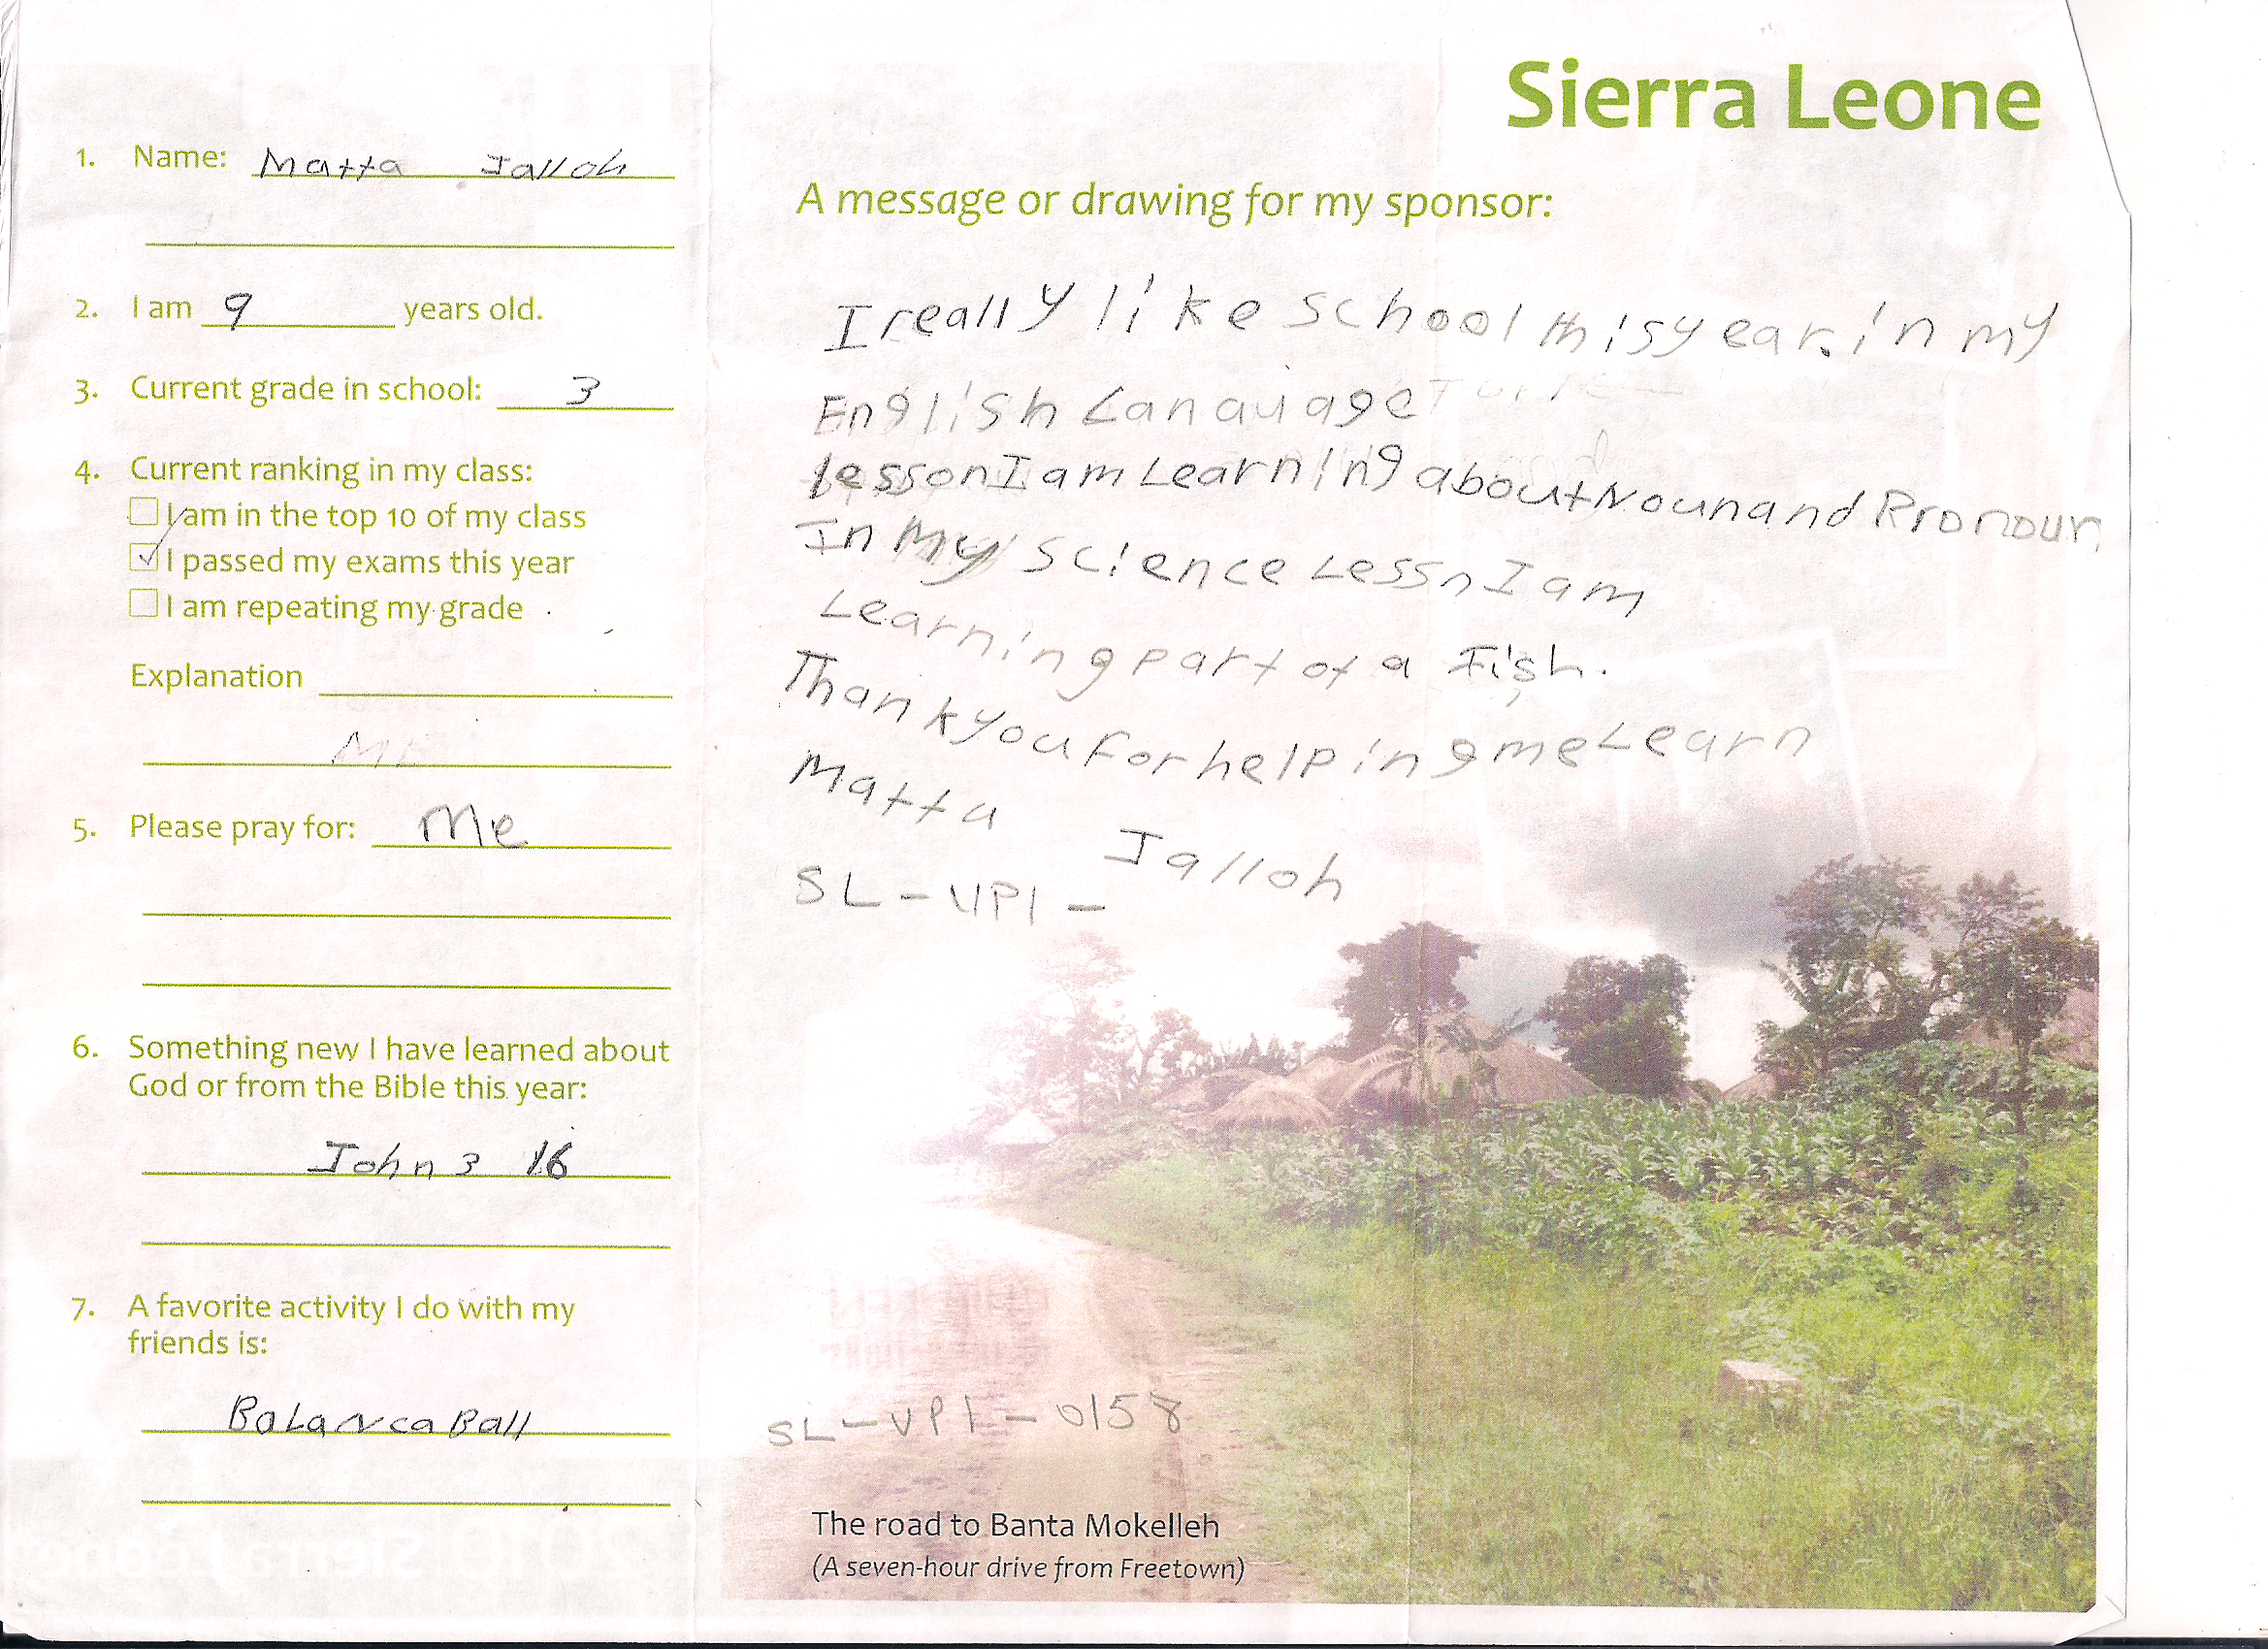 Sierra Leone
1. Name: Matta Jalloh
2. I am 9 years old.
3. Current grade in school: 3
4. Current ranking in my class:
I am in the top 10 of my class
I passed my exams this year
I am repeating my grade
Explanation
ME
5. Please pray for: Me
6. Something new I have learned about
God or from the Bible this year:
John 3 16
7. A favorite activity I do with my
friends is:
BaLanca Ball
A message or drawing for my sponsor:
I really like school this year. in my
English Lanauage
lesson I am Learning about Noun and Pronoun
In My science Lessn I am
Learning part of a Fish.
Thank you For helping me Learn
Matta Jalloh
SL-VPI-
SL-VPI-0158
The road to Banta Mokelleh
(A seven-hour drive from Freetown)